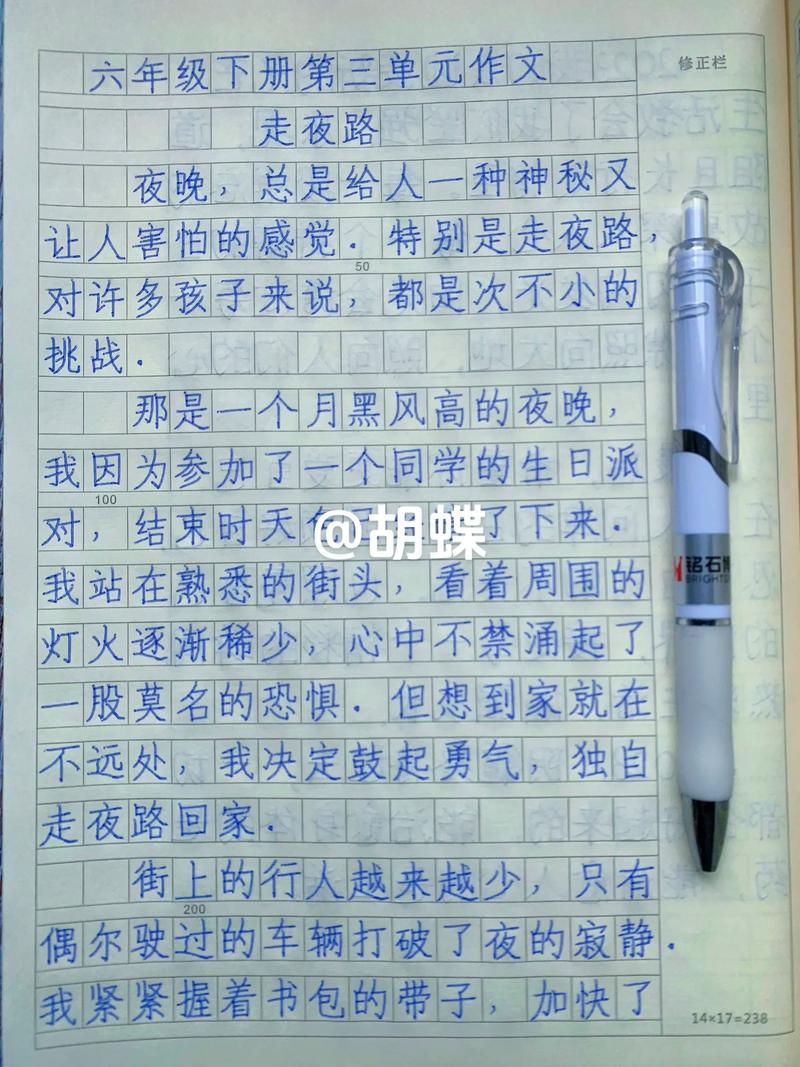 六年级下册第三单元作文
修正栏
走夜路
夜晚，总是给人一种神秘又
让人害怕的感觉．特别是走夜路，
50
对许多孩子来说，都是次不小的
挑战．
那是一个月黑风高的夜晚，
我因为参加了一个同学的生日派
100
对，结束时天了下来．
@胡蝶
我站在熟悉的街头，看着周围的
灯火逐渐稀少，心中不禁涌起了
一股莫名的恐惧．但想到家就在
不远处，我决定鼓起勇气，独自
走夜路回家．
街上的行人越来越少，只有
200
偶尔驶过的车辆打破了夜的寂静．
我紧紧握着书包的带子，加快了
14×17=238
铭石
BRIGHT